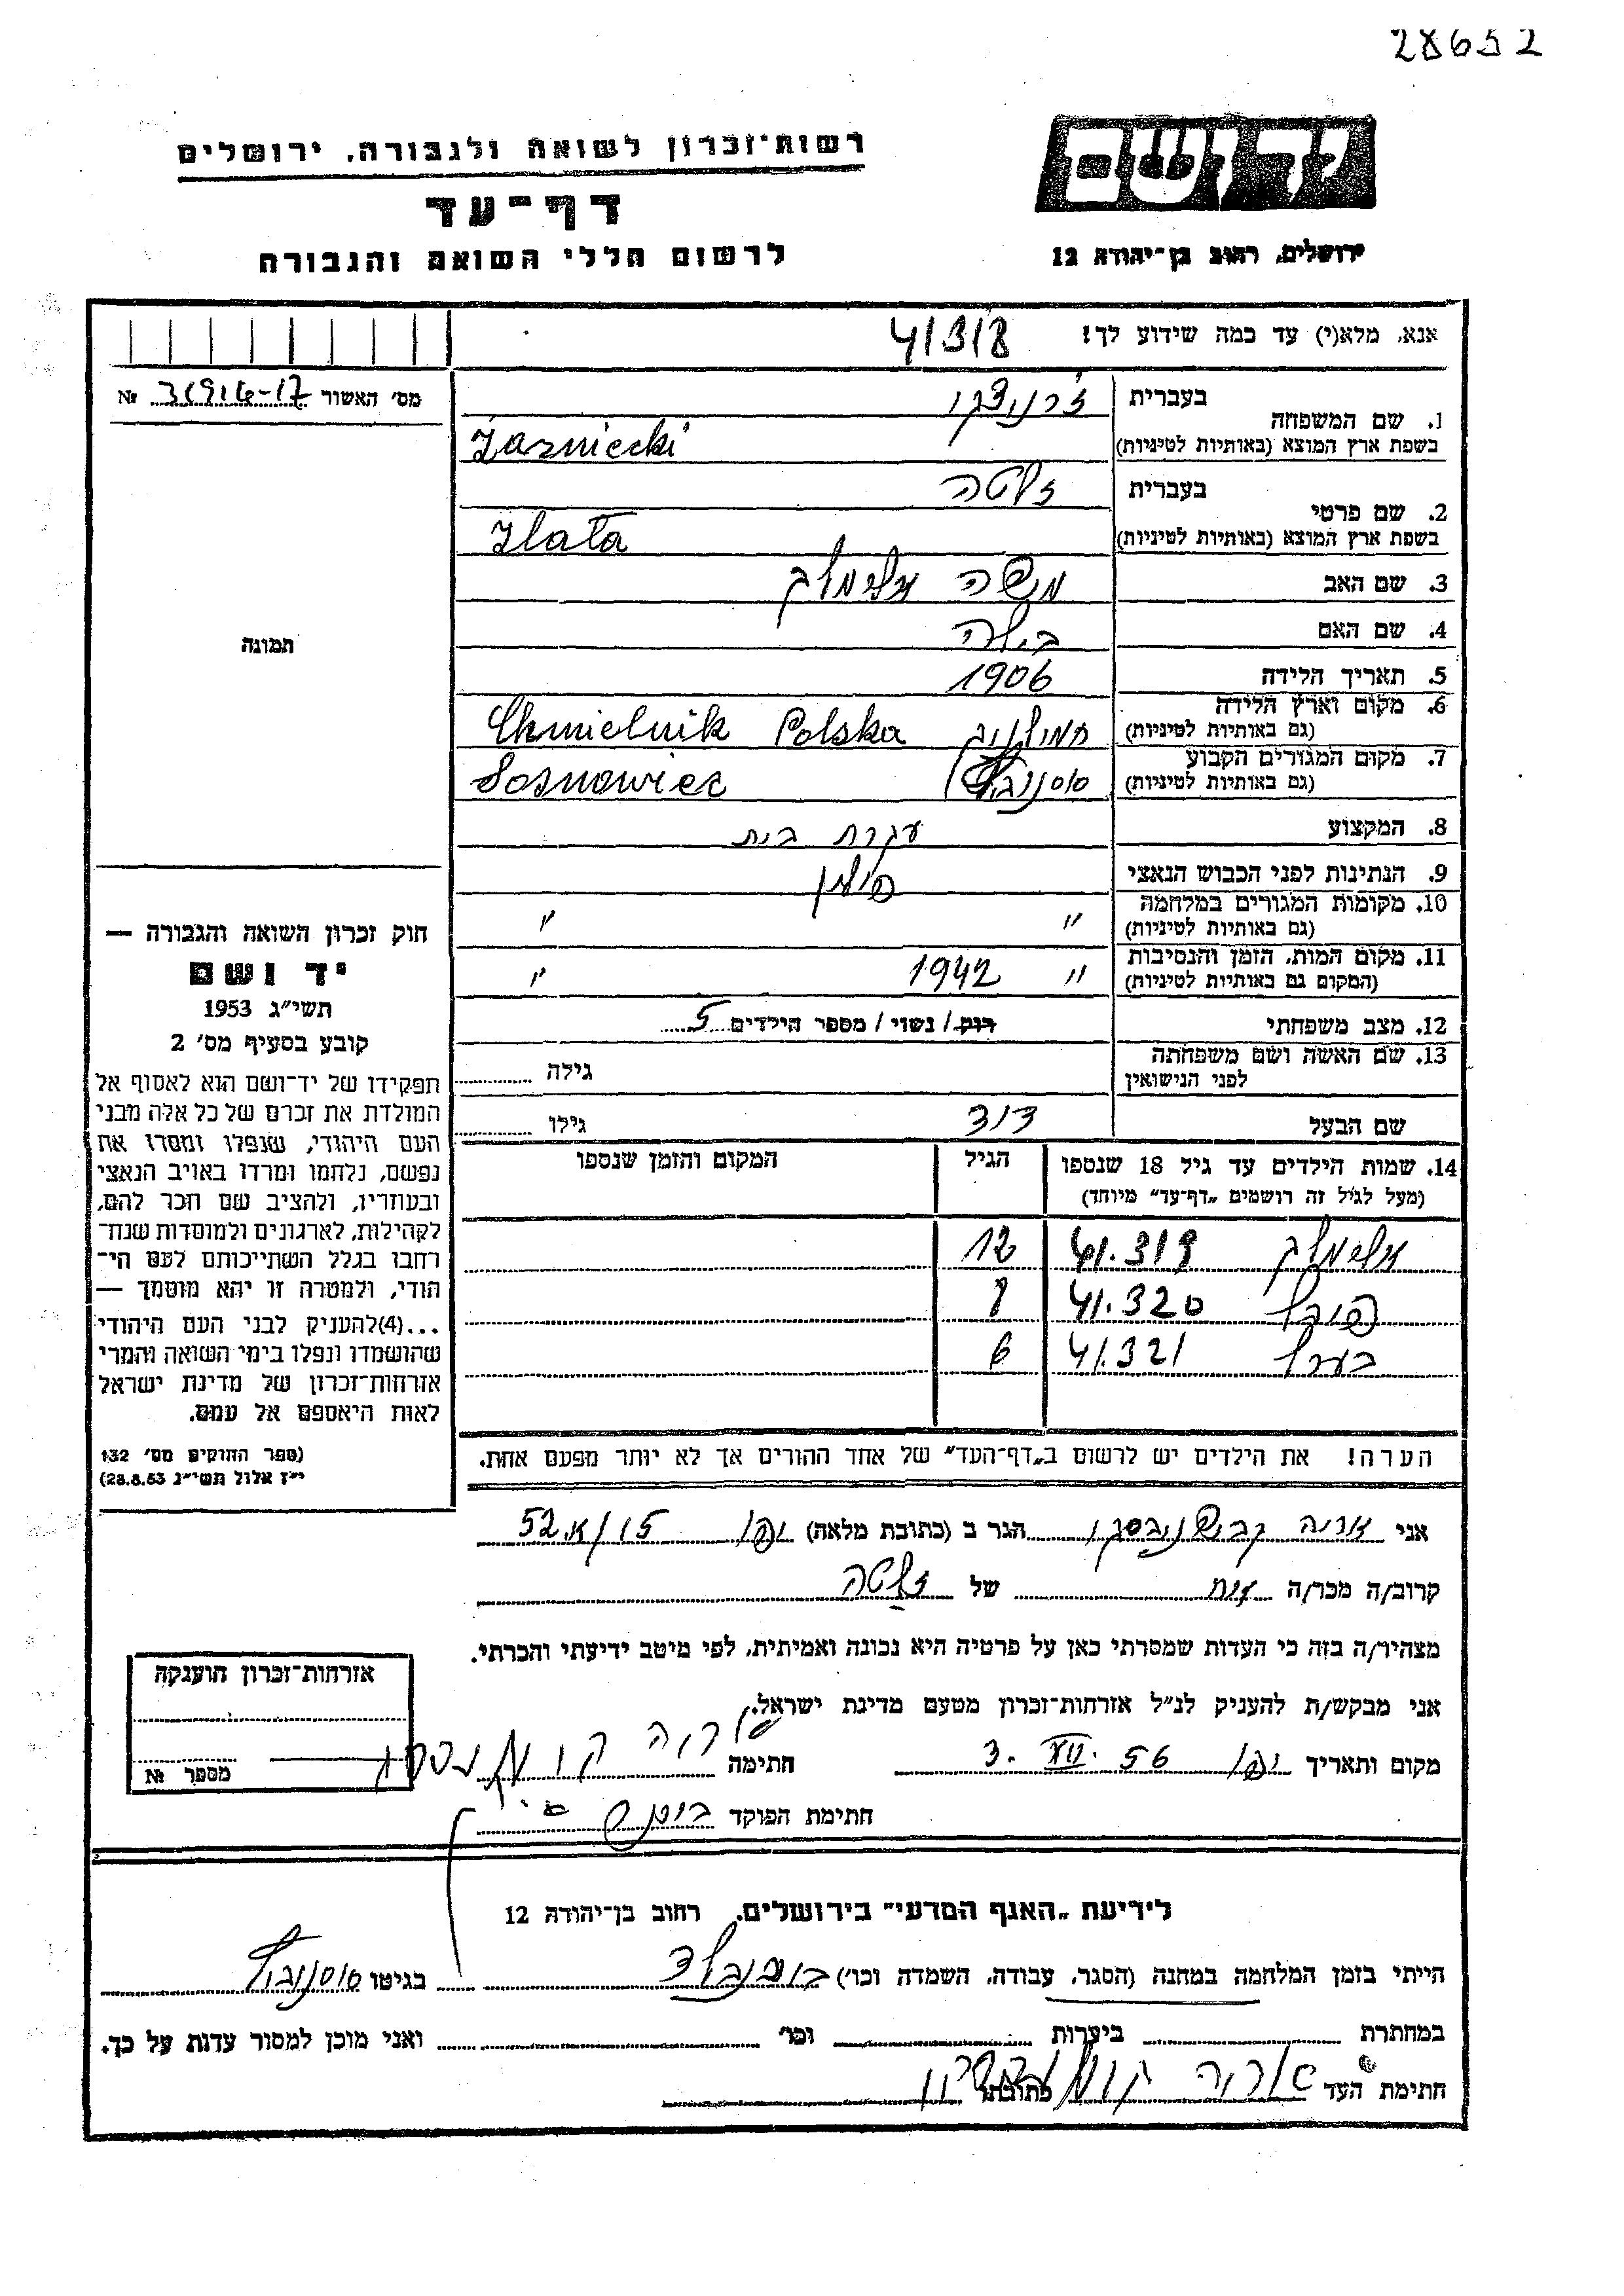 28652
רשות־זכרון לשואה ולגבורה, ירושלים
דף־עד
לרשום חללי השואה והגבורה
ידושם
ירושלים, רחוב בן־יהודה 12
אנא, מלא(י) עד כמה שידוע לך! 41318
מס' האשור 31916-17 №
תמונה
1. שם המשפחה בעברית ז'רניצקי
בשפת ארץ המוצא (באותיות לטיניות) Żarniecki
2. שם פרטי בעברית זלטה
בשפת ארץ המוצא (באותיות לטיניות) Zlata
3. שם האב משה אלימלך
4. שם האם בילה
5. תאריך הלידה 1906
6. מקום וארץ הלידה (גם באותיות לטיניות) חמילניק Chmielnik Polska
7. מקום המגורים הקבוע (גם באותיות לטיניות) Sosnowiec
8. המקצוע עקרת בית
9. הנתינות לפני הכבוש הנאצי פולין
10. מקומות המגורים במלחמה (גם באותיות לטיניות) " "
11. מקום המות, הזמן והנסיבות (המקום גם באותיות לטיניות) " 1942 "
12. מצב משפחתי רוק / נשוי / מספר הילדים 5
13. שם האשה ושם משפחתה לפני הנישואין גילה
שם הבעל דוד גילו
14. שמות הילדים עד גיל 18 שנספו הגיל המקום והזמן שנספו
(מעל לגיל זה רושמים „דף־עד" מיוחד)
אלימלך 41.319 12
41.320 8
41.321 6
הערה! את הילדים יש לרשום ב„דף־העד" של אחד ההורים אך לא יותר מפעם אחת.
חוק זכרון השואה והגבורה —
יד ושם
תשי"ג 1953
קובע בסעיף מס' 2
תפקידו של יד־ושם הוא לאסוף אל
המולדת את זכרם של כל אלה מבני
העם היהודי, שנפלו ומסרו את
נפשם, נלחמו ומרדו באויב הנאצי
ובעוזריו, ולהציב שם וזכר להם,
לקהילות, לארגונים ולמוסדות שנח־
רבו בגלל השתייכותם לעם הי־
הודי, ולמטרה זו יהא מוסמך —
...(4) להעניק לבני העם היהודי
שהושמדו ונפלו בימי השואה והמרי
אזרחות־זכרון של מדינת ישראל
לאות היאספם אל עמם.
(ספר החוקים מס' 132
י"ז אלול תשי"ג 28.8.53)
אני אריה הגר ב (כתובת מלאה) יפו 15/א 52
קרוב/ה מכר/ה של זלטה
מצהיר/ה בזה כי העדות שמסרתי כאן על פרטיה היא נכונה ואמיתית, לפי מיטב ידיעתי והכרתי.
אני מבקש/ת להעניק לנ"ל אזרחות־זכרון מטעם מדינת ישראל.
מקום ותאריך יפו 3. VII. 56 חתימה
חתימת הפוקד
אזרחות־זכרון הוענקה
מספר №
לידיעת „האגף המדעי" בירושלים, רחוב בן־יהודה 12
הייתי בזמן המלחמה במחנה (הסגר, עבודה, השמדה וכו') בוכנולד בגיטו
במחתרת ביערות וכו' ואני מוכן למסור עדות על כך.
חתימת העד כתובתו